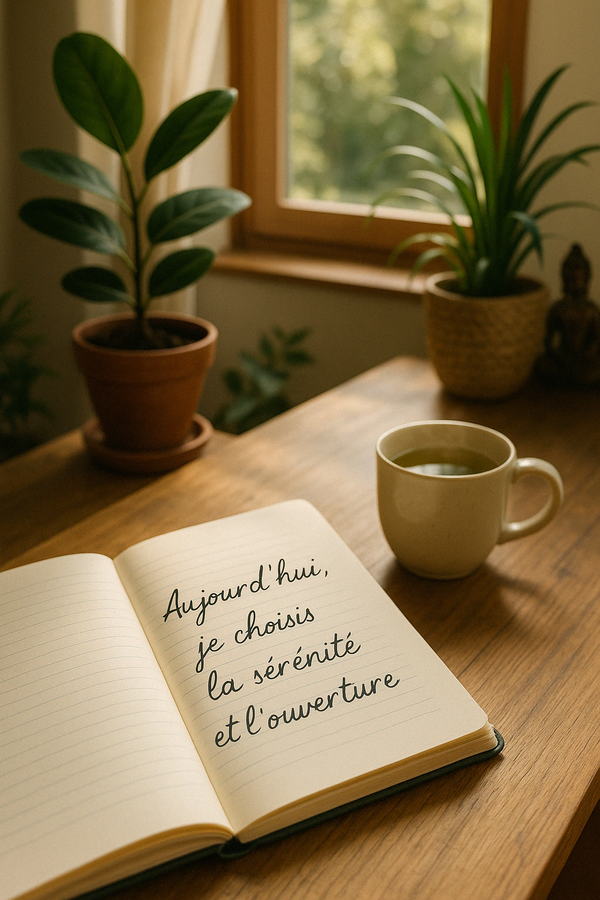 Aujourd'hui,
je choisis
la sérénité
et l'ouverture